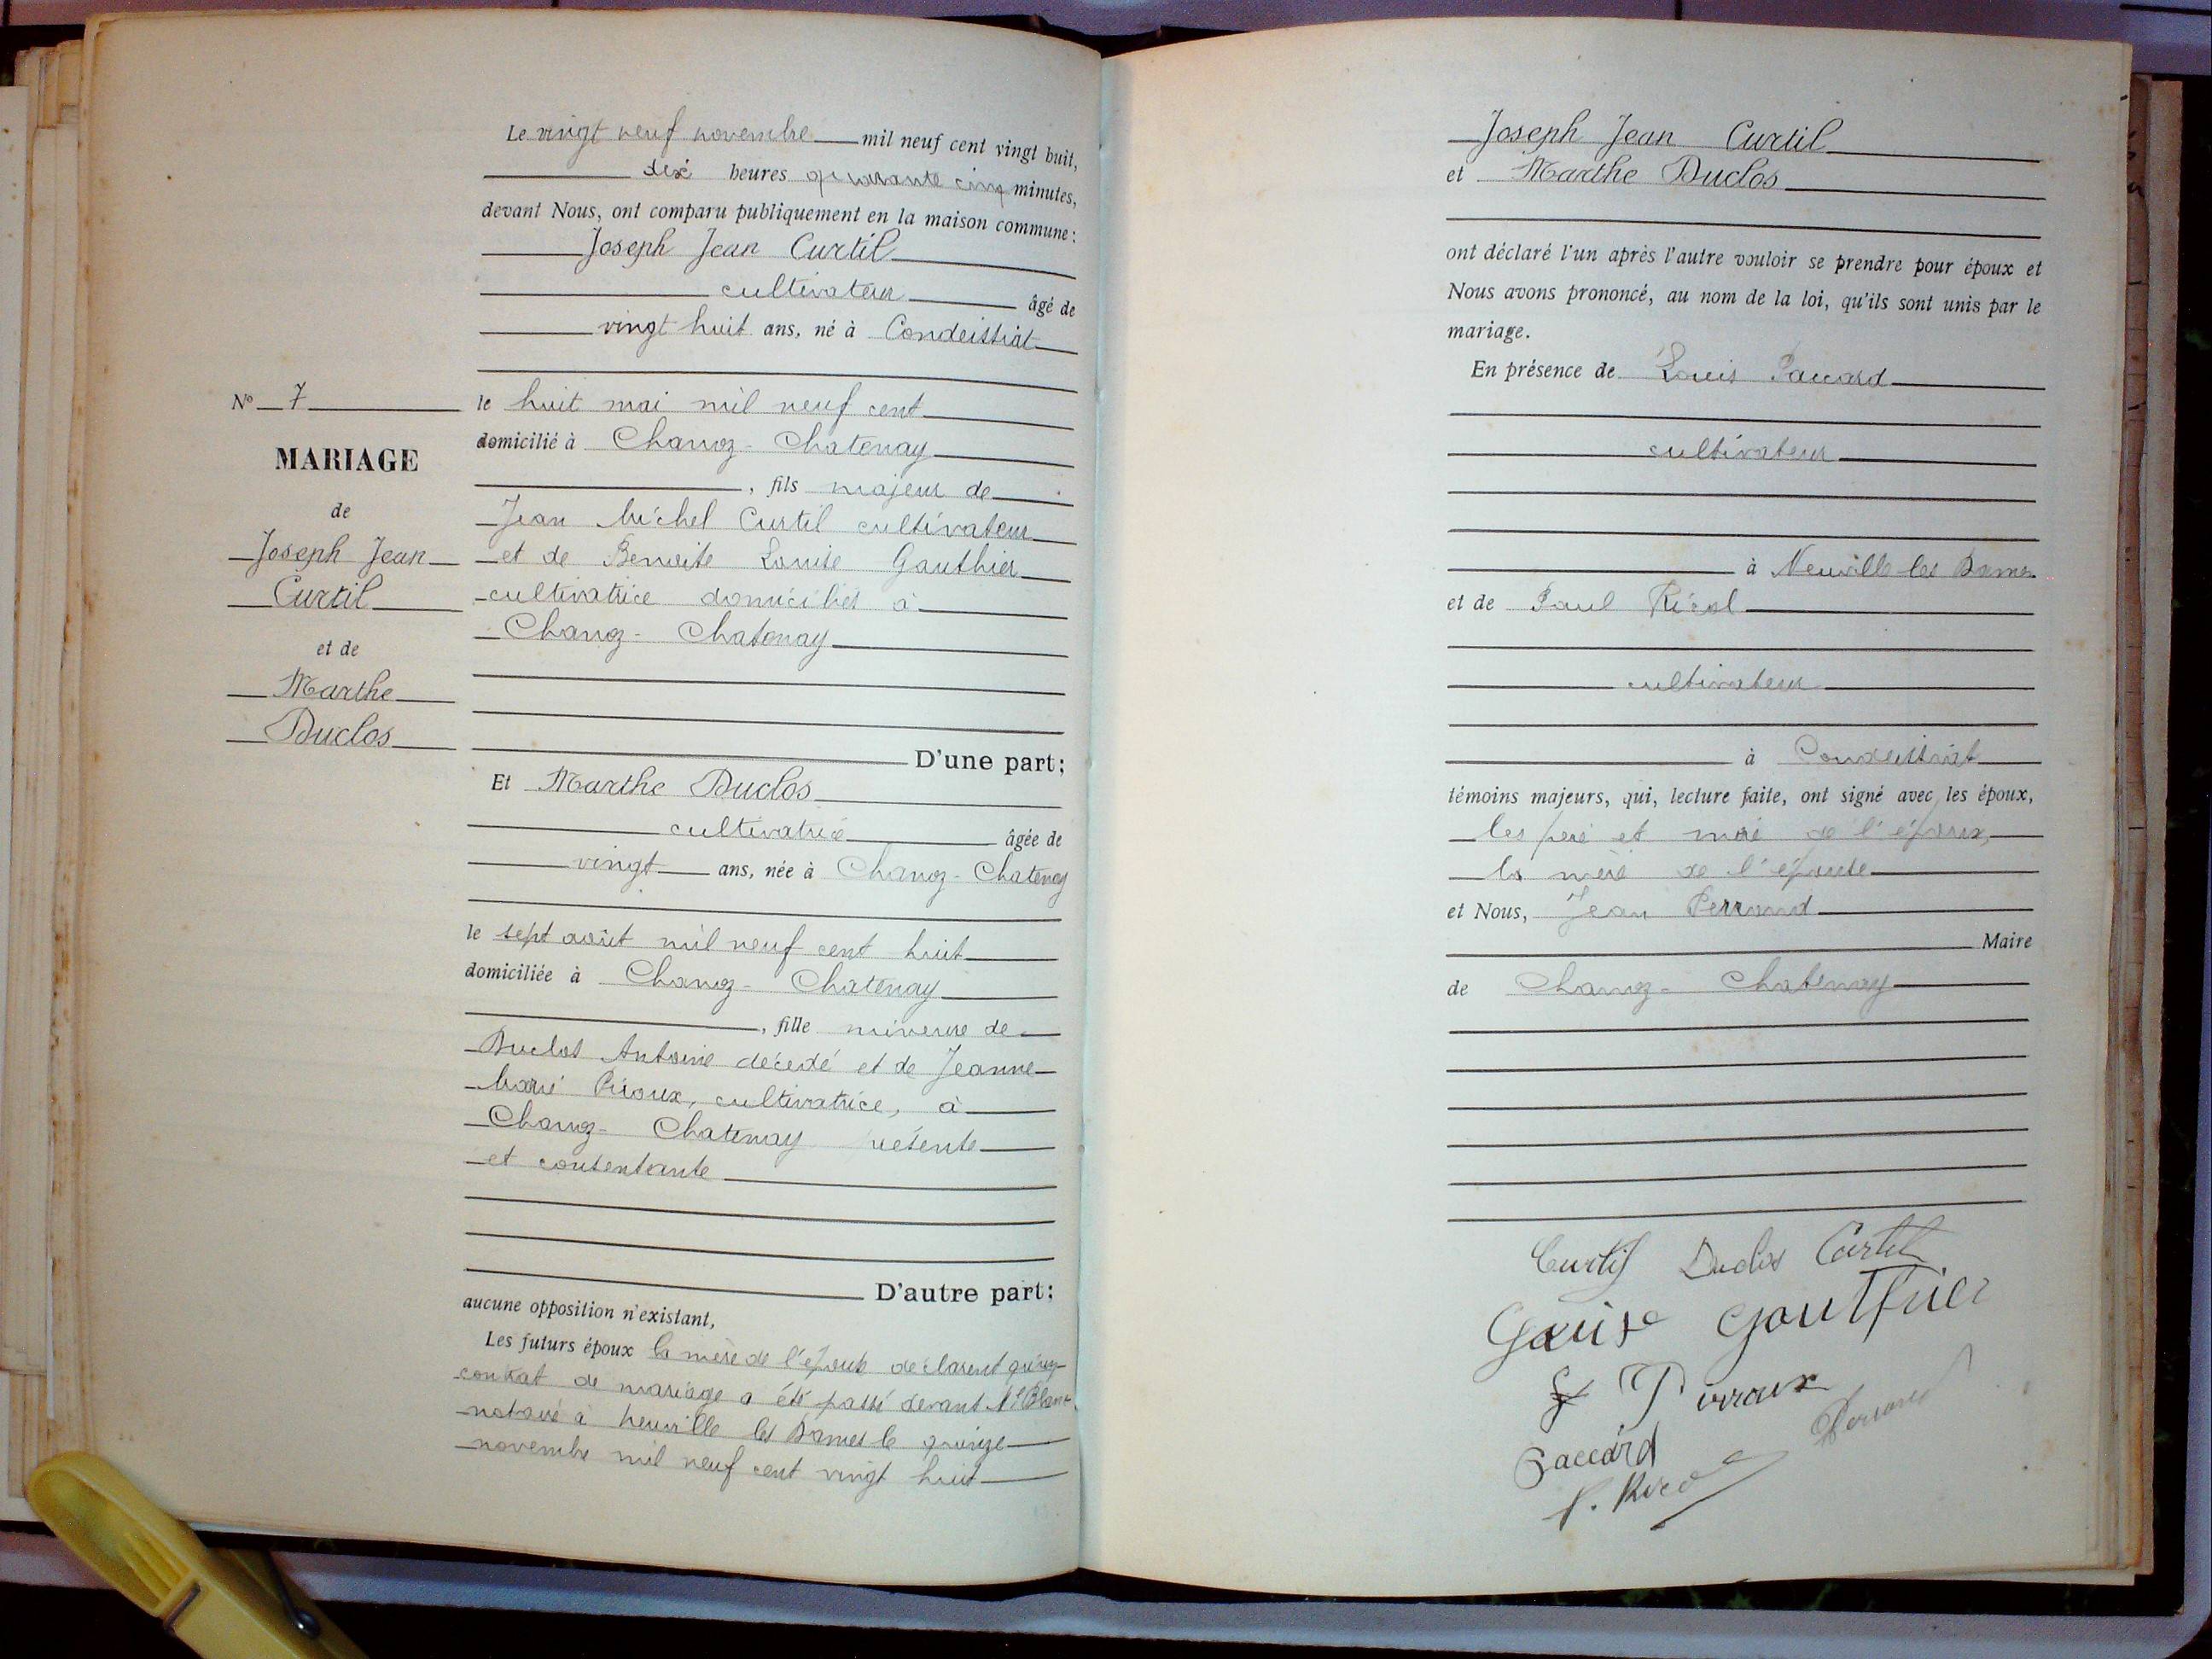 Le vingt neuf novembre mil neuf cent vingt huit,
dix heures quarante cinq minutes,
devant Nous, ont comparu publiquement en la maison commune :
Joseph Jean Curtil
cultivateur âgé de
vingt huit ans, né à Condeissiat
le huit mai mil neuf cent
domicilié à Chanoz - Chatenay
, fils majeur de
Jean Michel Curtil cultivateur
et de Benoite Louise Gauthier
cultivatrice domiciliés à
Chanoz - Chatenay
D'une part ;
Nº 7
MARIAGE
de
Joseph Jean
Curtil
et de
Marthe
Duclos
Et Marthe Duclos
cultivatrice âgée de
vingt ans, née à Chanoz - Chatenay
le sept août mil neuf cent huit
domiciliée à Chanoz - Chatenay
, fille mineure de
Duclos Antoine décédé et de Jeanne
Marie Piroux, cultivatrice, à
Chanoz - Chatenay présente
et consentante
D'autre part ;
aucune opposition n'existant,
Les futurs époux la mère de l'épouse déclarent qu'un
contrat de mariage a été passé devant Me Blanc
notaire à Neuville les Dames le quinze
novembre mil neuf cent vingt huit
Joseph Jean Curtil
et Marthe Duclos
ont déclaré l'un après l'autre vouloir se prendre pour époux et
Nous avons prononcé, au nom de la loi, qu'ils sont unis par le
mariage.
En présence de Louis Paccard
cultivateur
à Neuville-les Dames
et de Paul Ricol
cultivateur
à Condeissiat
témoins majeurs, qui, lecture faite, ont signé avec les époux,
les père et mère de l'époux,
la mère de l'épouse
et Nous, Jean Perraud
Maire
de Chanoz - Chatenay
Curtil Duclos Curtil
Gauthier
Paccard
Perraud